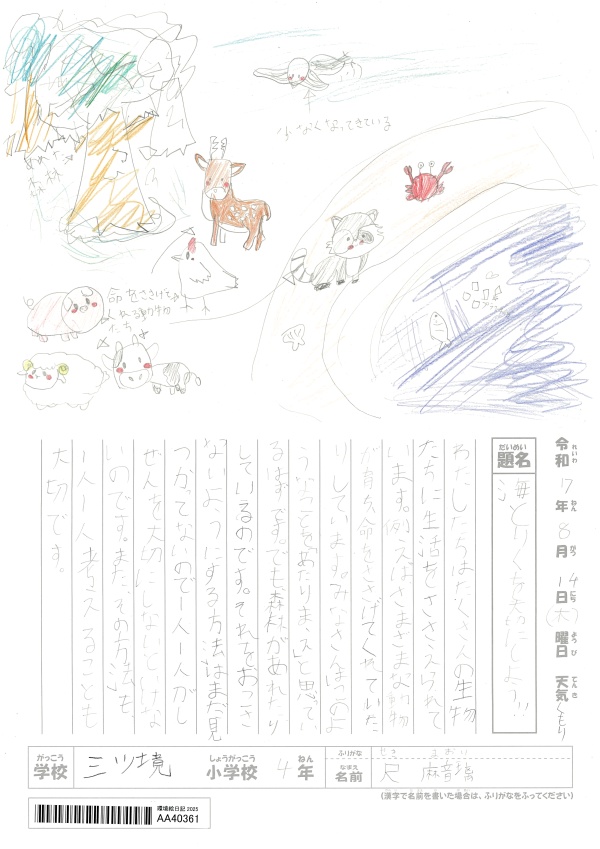 あれた
森林
少なくなってきている
命をささげて
くれる動物
たち
令和 7年 8月 14日(木)曜日 天気 くもり
れいわ ねん がつ にち ようび てんき
だいめい
題名
海とりくを大切にしよう!!!
わたしたちはたくさんの生物
たちに生活をささえられて
います。例えばさまざまな動物
が育ち、命をささげてくれていた
りしています。みなさんはこのよ
うなことを「あたりまえ」と思ってい
るはずです。でも森林があれたり
しているのです。それをおこさ
ないようにする方法はまだ見
つかってないので一人一人がし
ぜんを大切にしないといけな
いのです。また、その方法も、
一人一人考えることも
大切です。
がっこう しょうがっこう ねん ふりがな
学校 三ツ境 小学校 4年
なまえ
名前
(漢字で名前を書いた場合は、ふりがなをふってください)
環境絵日記 2025
AA40361